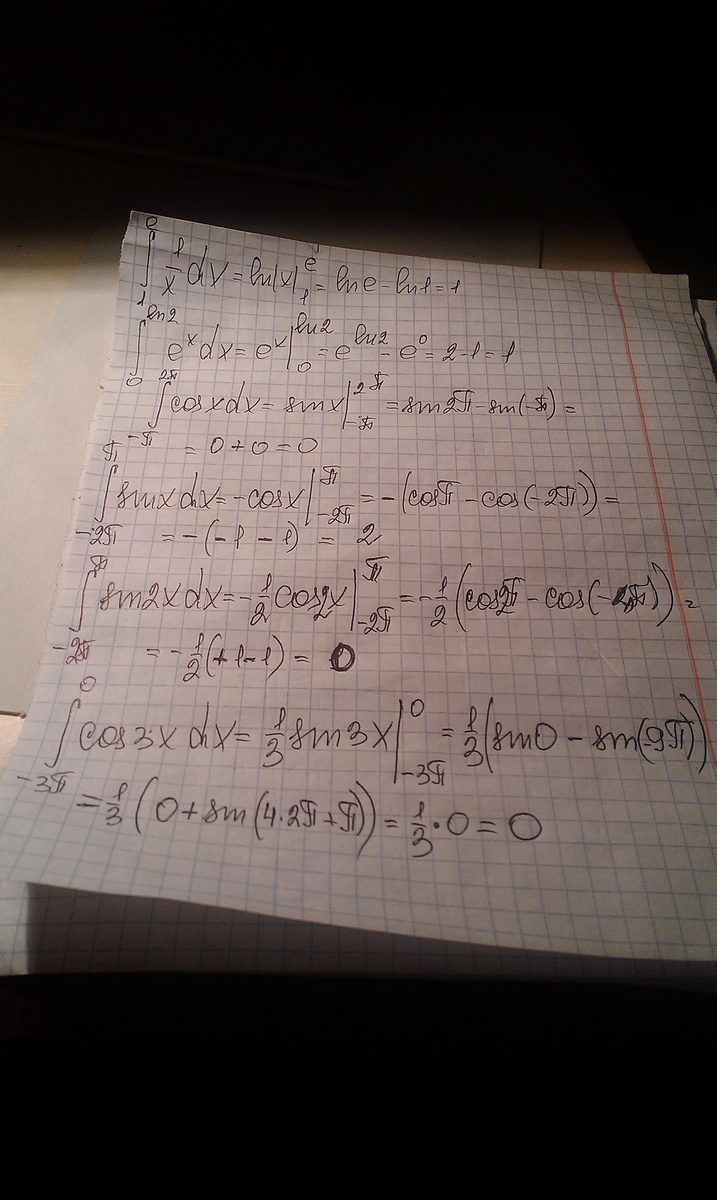 ∫₁ᵉ 1/x dx = ln|x| |₁ᵉ = ln e - ln 1 = 1
∫₀^(ln2) eˣdx = eˣ |₀^(ln2) = e^(ln2) - e⁰ = 2-1 = 1
∫_(-π)^(2π) cosxdx = sinx |_(-π)^(2π) = sin2π - sin(-π) =
= 0 + 0 = 0
∫_(-2π)^π sinxdx = -cosx |_(-2π)^π = -(cosπ - cos(-2π)) =
= -(-1 - 1) = 2
∫_(-2π)^π sin2xdx = -1/2 cos2x |_(-2π)^π = -1/2 (cos2π - cos(-4π)) =
= -1/2 (+1-1) = 0
∫_(-3π)^0 cos3x dx = 1/3 sin3x |_(-3π)^0 = 1/3 (sin0 - sin(-9π))
= 1/3 (0 + sin(4·2π+π)) = 1/3 · 0 = 0